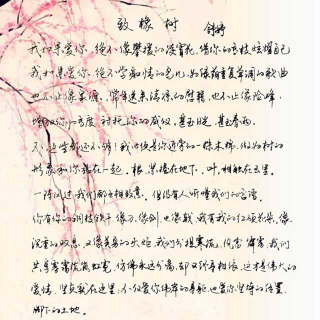 致橡树
舒婷
我如果爱你，绝不像攀援的凌霄花，借你的高枝炫耀自己
我如果爱你，绝不学痴情的鸟儿，为绿荫重复单调的歌曲
也不止像泉源，常年送来清凉的慰藉，也不止像险峰，
增加你的高度，衬托你的威仪，甚至日光，甚至春雨。
不，这些都还不够！我必须是你近旁的一株木棉，做为树的
形象和你站在一起。根，紧握在地下，叶，相触在云里。
一阵风过，我们都互相致意，但没有人听懂我们的言语。
你有你的铜枝铁干，像刀，像剑，也像戟，我有我的红硕花朵，像
沉重的叹息，又像英勇的火炬，我们分担寒流、风雷、霹雳，我们
共享雾霭流岚虹霓，仿佛永远分离，却又终身相依，这才是伟大的
爱情，坚贞就在这里，不仅爱你伟岸的身躯，也爱你坚持的位置，
脚下的土地。